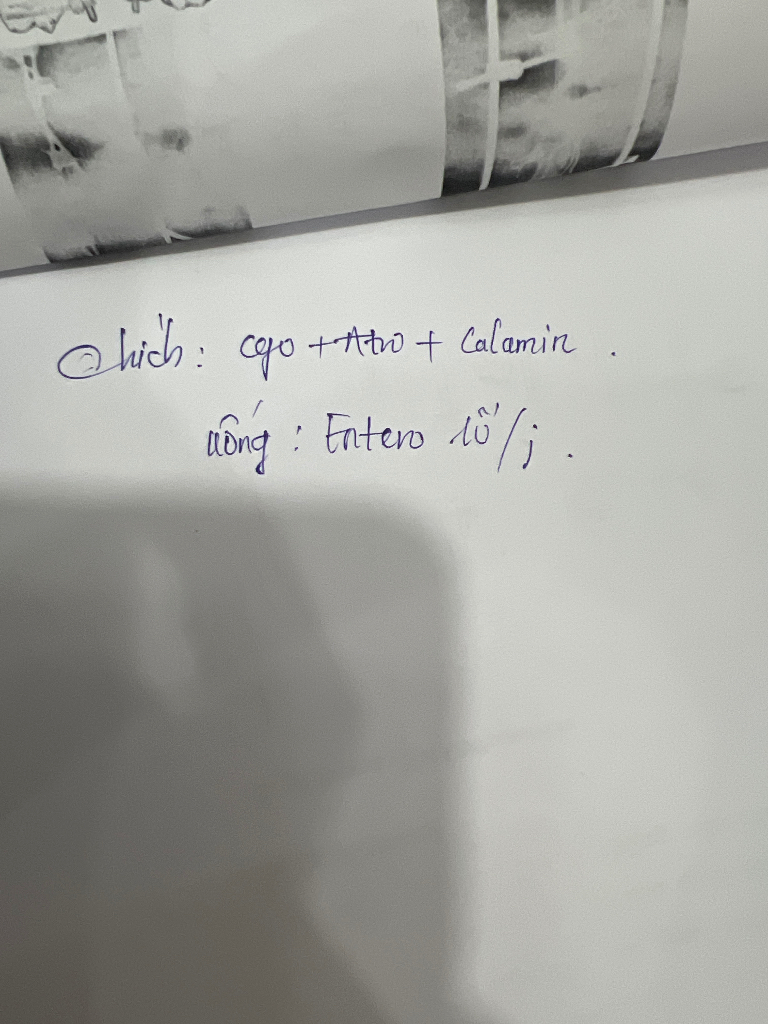 Chích: cefo + Atro + Calamin .
uống : Entero 1ố/j .